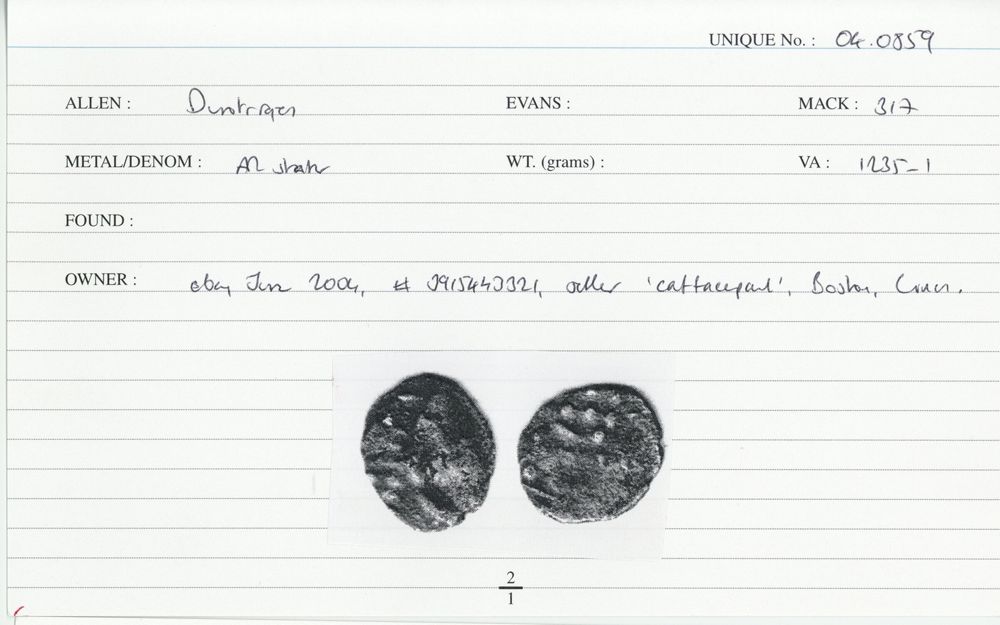 UNIQUE No. : 04.0859
ALLEN : Durotriges EVANS : MACK : 317
METAL/DENOM : AR stater WT. (grams) : VA : 1235-1
FOUND :
OWNER : ebay June 2004, # 3915443321, seller 'cattacepaul', Boston, Lincs.
2
1